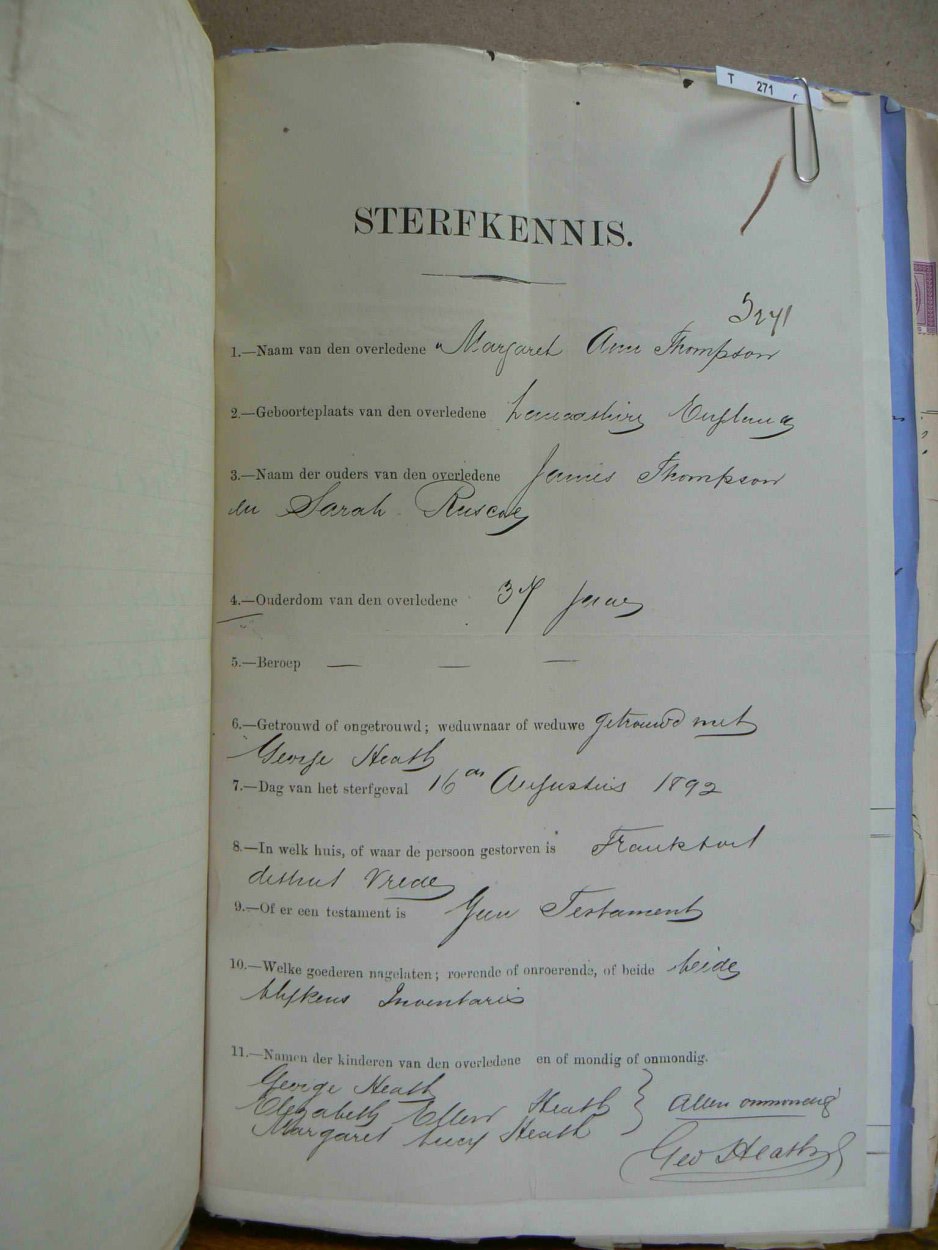 T 271
STERFKENNIS.
5271
1.—Naam van den overledene Margaret Ann Thompson
2.—Geboorteplaats van den overledene Lancashire England
3.—Naam der ouders van den overledene James Thompson
en Sarah Ruscoe
4.—Ouderdom van den overledene 37 Jaar
5.—Beroep — — —
6.—Getrouwd of ongetrouwd; weduwnaar of weduwe getrouwd met
George Heath
7.—Dag van het sterfgeval 16de Augustus 1892
8.—In welk huis, of waar de persoon gestorven is Frankfort
district Vrede
9.—Of er een testament is Geen Testament
10.—Welke goederen nagelaten; roerende of onroerende, of beide beide
blykens Inventaris
11.—Namen der kinderen van den overledene en of mondig of onmondig.
George Heath
Elizabeth Ellen Heath } Allen onmondig
Margaret Lucy Heath
Geo Heath